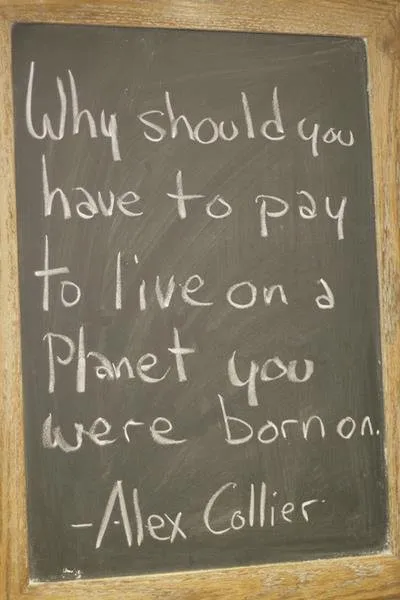 Why should you
have to pay
to live on a
Planet you
were born on.
-Alex Collier